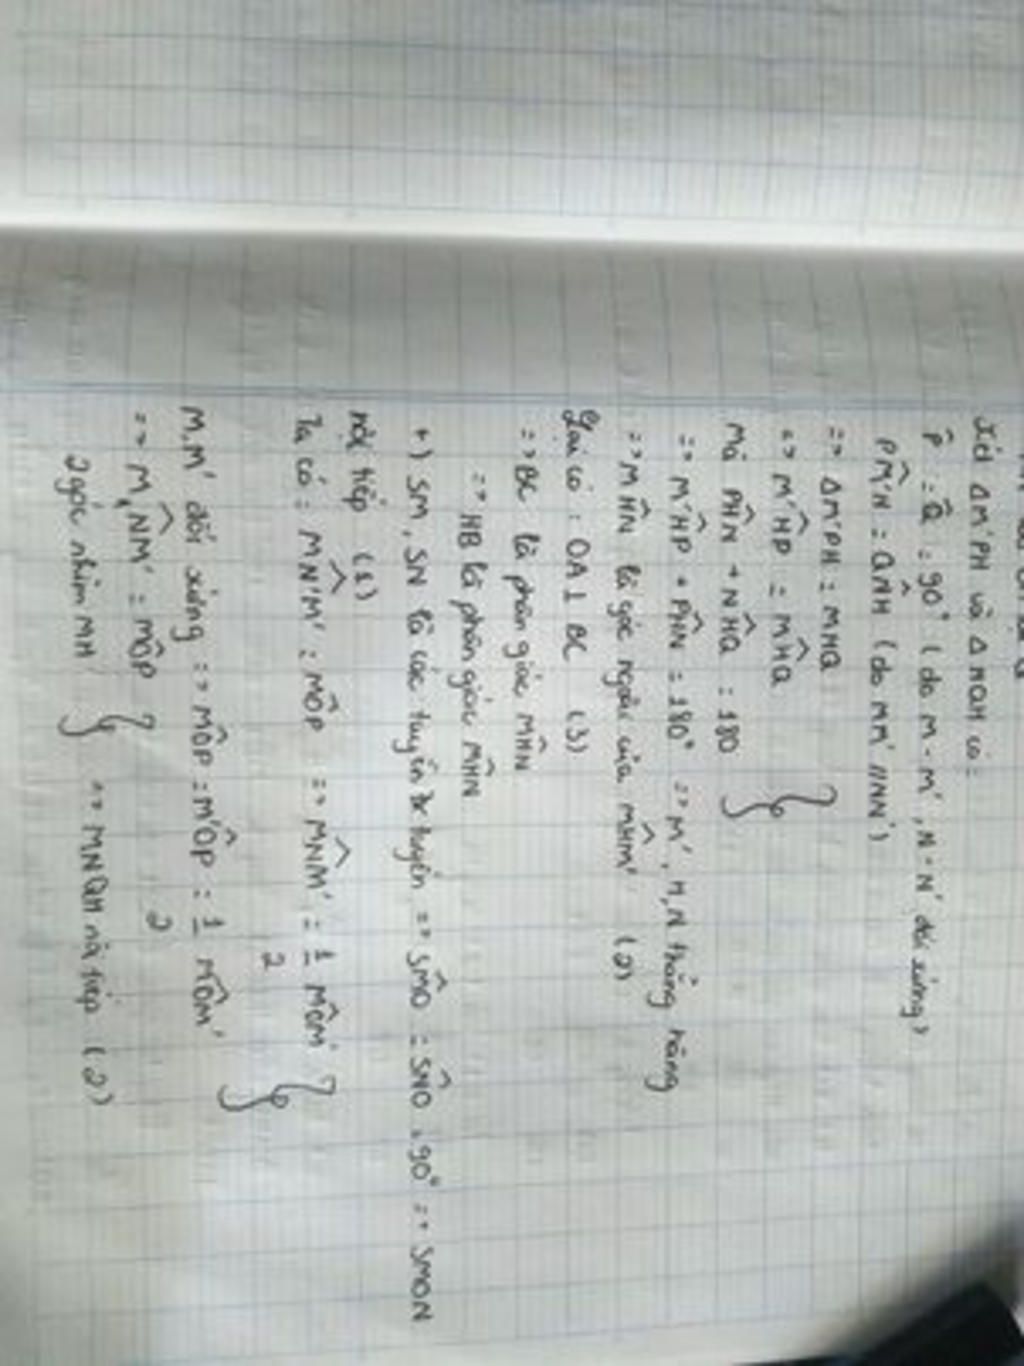 Xét ΔM'PH và Δ MQH có:
P̂ = Q̂ = 90° ( do M - M', N - N' đối xứng)
PM̂'H = QM̂H ( do MM' // NN')
=> ΔM'PH = MHQ
=> M'ĤP = MĤQ
Mà PĤN + NĤQ = 180
=> M'ĤP + PĤN = 180° => M', H, N thẳng hàng
=> MĤN là góc ngoài của MĤM' (2)
Lại có : OA ⊥ BC (3)
=> BC là phân giác MĤN
=> HB là phân giác MĤN
+) SM, SN là các tuyến => SM̂O = SN̂O = 90° => SMON
nội tiếp (1)
Ta có : MN̂'M' = MÔP => MN̂M' = 1/2 MÔM'
M, M' đối xứng => MÔP = M'ÔP = 1/2 MÔM'
=> M,N̂M' = MÔP
2 góc nhìn MH => MNQH nội tiếp (2)